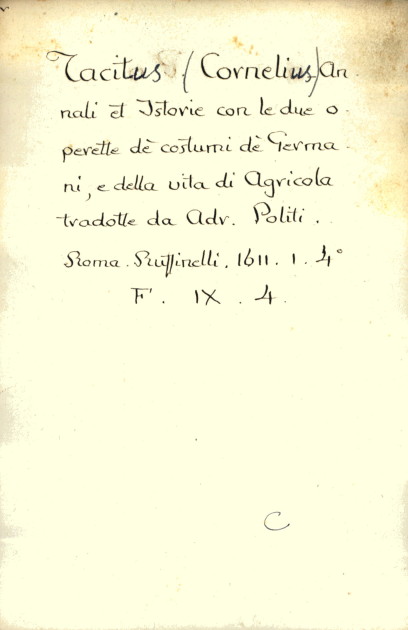 Tacitus (Cornelius) An-
nali et Istorie con le due o-
perette dè costumi dè Germa-
ni, e della vita di Agricola
tradotte da Adr. Politi.
Roma. Ruffinelli. 1611. 1. 4°
F. IX. 4.
C